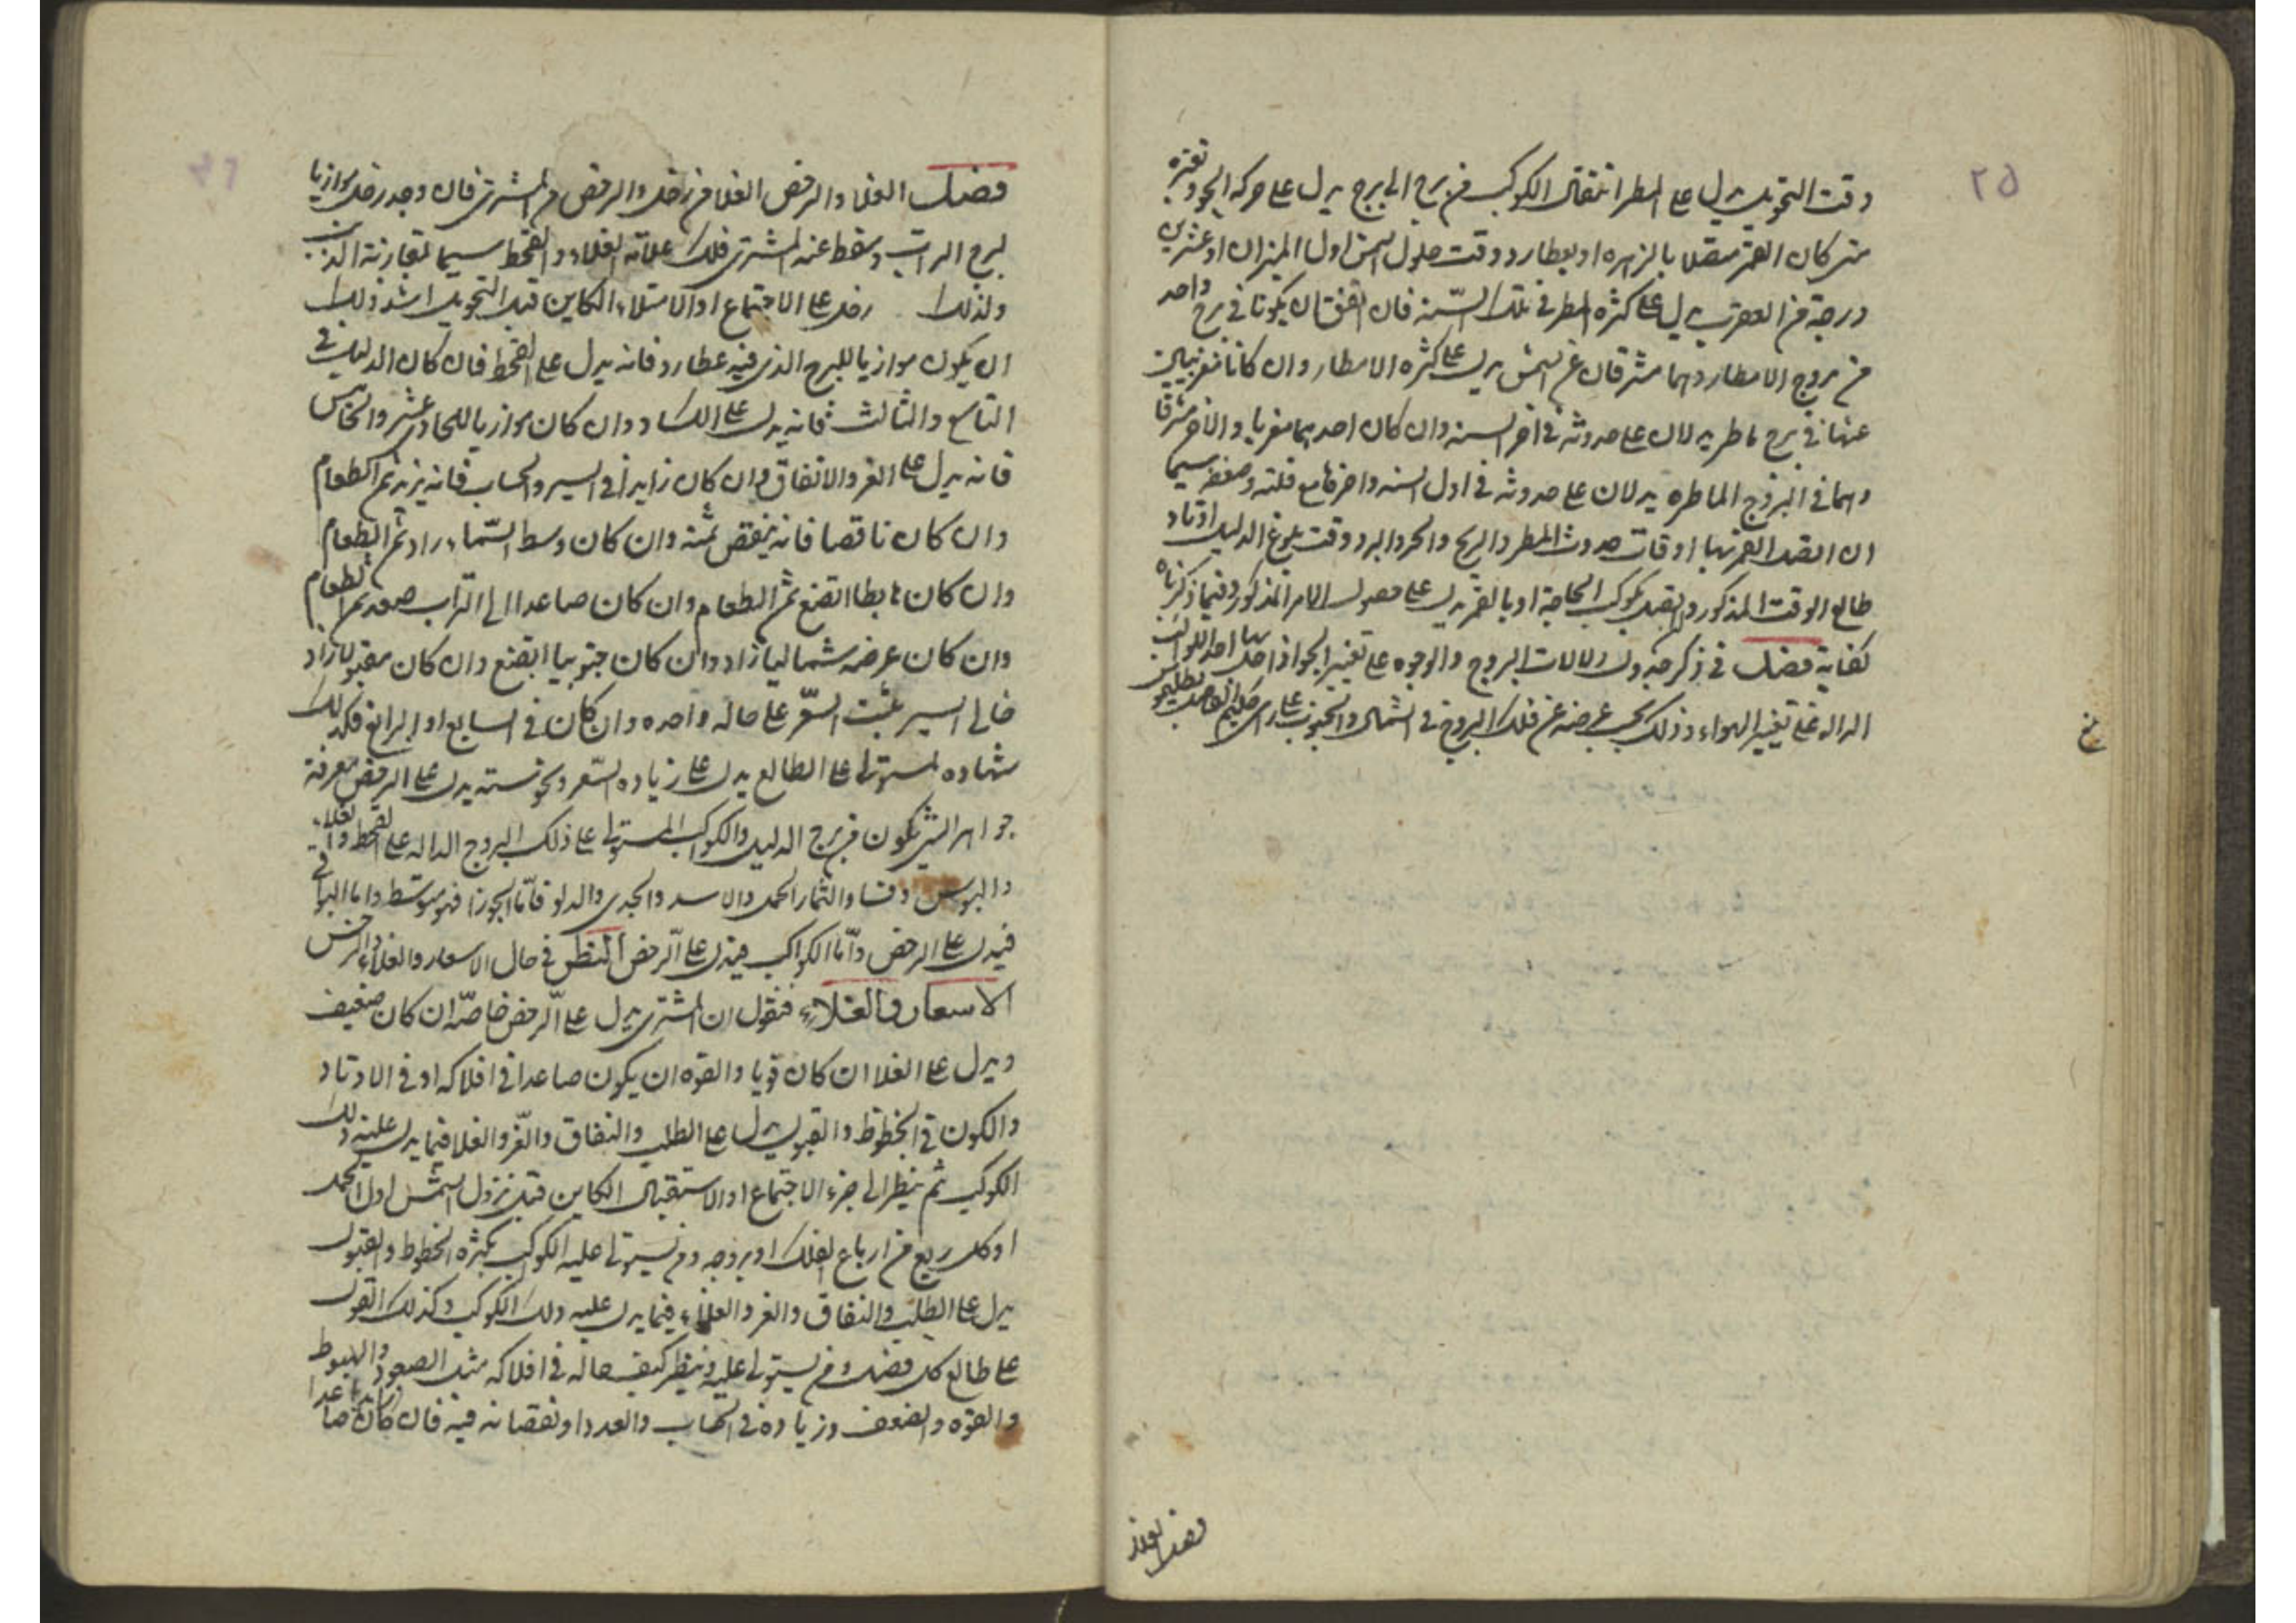 ٢٥
وقت التحويل يدل على المطر انتقال الكوكب من برج الى برج يدل على حركه الجو وتغيره
متى كان القمر متصلا بالزهره او بعطارد وقت حلول الشمس اول الميزان او عشرين
درجة من العقرب يدل على كثره المطر فى تلك السّنة فان اتفق ان يكونا فى برج واحد
من بروج الامطار وهما مشرقان عن الشمس يدل على كثره الامطار وان كانا مغربين
عنها فى برج ماطر يدلان على حدوثه فى اخر السنه وان كان احدهما مغربا والاخر مشرقا
وهما فى البروج الماطره يدلان على حدوثه فى اول السنه واخرها مع قلته وضعفه سيما
ان اتصل القمر بها اوقات حدوث المطر والريح والحر والبرد وقت بلوغ الدليل اوتاد
طالع الوقت المذكور بكوكب الحاجة او بالقمر يدل على حصول الامر المذكور وفيما ذكرناه
كفاية فصل فى ذكر جدول دلالات البروج والوجوه على تغيير الجو اذا حل بها احد الكواكب
الداله على تغيير الهواء وذلك بحسب عرضه عن فلك البروج فى الشمال والجنوب على راى الحكيم الفاضل بطلميوس
فصل الغلا
فصل الغلا والرخص الغلا من زحل والرخص من المشترى فان وجد زحل موازيا
لبرج الراس وسقط عنه المشترى فذلك علامة الغلاء والقحط سيما لمقارنة الذنب
ولذلك زحل على الاجتماع او الامتلاء الكاين قبل التحويل اشد ذلك
ان يكون موازيا للبرج الذى فيه عطارد فانه يدل على القحط فان كان الدليل فى
التاسع والثالث فانه يدل على الكساد وان كان موازيا للحادى عشر والخامس
فانه يدل على العز والانفاق وان كان زايدا فى السير والحساب فانه يزيد ثمن الطعام
وان كان ناقصا فانه ينقص ثمنه وان كان وسط السّماء زاد ثمن الطعام
وان كان هابطا اتضع ثمن الطعام وان كان صاعدا الى صعد ثمن الطعام
وان كان عرضه شماليا زاد وان كان جنوبيا اتضع وان كان مقبولا زاد
خالى السير يثبت السّعر على حاله واحده وان كان فى السابع او الرابع فكذلك
شهاده المستولى على الطالع يدل على زياده السّعر ونحوسته يدل على الرخص معرفة
جواهر الشى يكون من برج الدليل والكوكب المستولى على ذلك البروج الداله على القحط والغلاء
والبوس والثمار الحمل والاسد والجدى والدلو فامّا الجوزا فهو متوسط واما البواقى
فيدل على الرخص وامّا الكواكب فيدل على الرخص النظر فى حال الاسعار والغلاء والرخص
الاسعار والغلاء فنقول ان المشترى يدل على الرخص خاصّة ان كان ضعيف
ويدل على الغلا ان كان قويا والقوه ان يكون صاعدا فى افلاكه او فى الاوتاد
والكون فى الحظوظ والقبول يدل على الطلب والنفاق والعز والغلا فيما يدل عليه ذلك
الكوكب ثم ينظر الى جزء الاجتماع او الاستقبال الكاين قبل نزول الشمس اول الحمل
او كل ربع من ارباع الفلك او بروجه ومن يستولى عليه الكوكب بكثره الحظوظ والقبول
يدل على الطلب والنفاق والعز والغلاء فيما يدل عليه ذلك الكوكب وكذلك القول
على طالع كل فصل ومن يستولى عليه وينظر كيف حاله فى افلاكه مثل الصعود والهبوط
والقوه والضعف وزياده فى الحساب والعدد او نقصانه فيه فان كان زايدا صاعدا